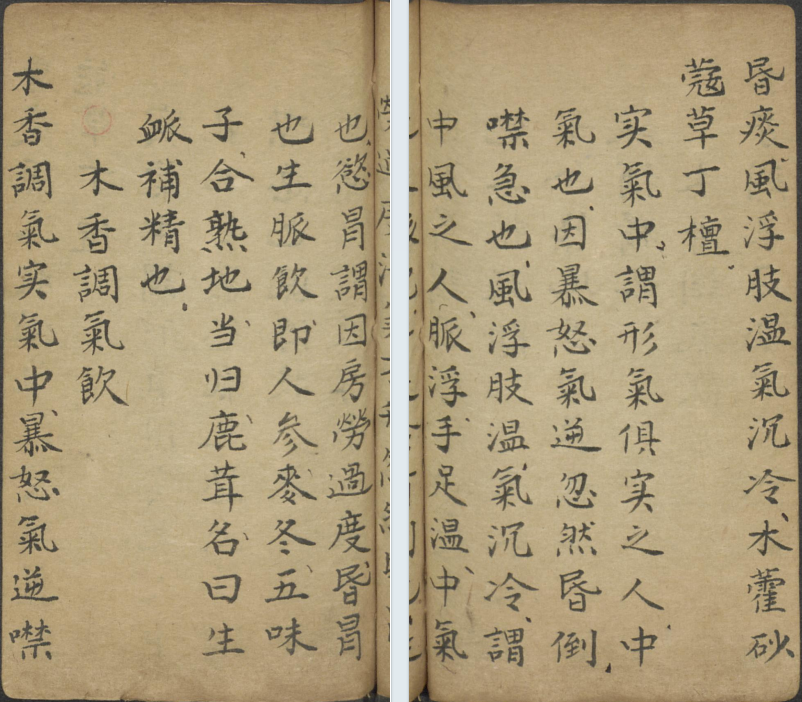 也慾冒謂因房勞過度昬冒
也生脈飲即人参麥冬五味
子合熟地当归鹿茸名曰生
衇補精也
木香調氣飲
木香調氣实氣中暴怒氣逆噤
昬痰風浮肢温氣沉冷木藿砂
蔻草丁檀
实氣中謂形氣俱实之人中
氣也因暴怒氣逆忽然昬倒
噤急也風浮肢温氣沉冷謂
中風之人脈浮手足温中氣